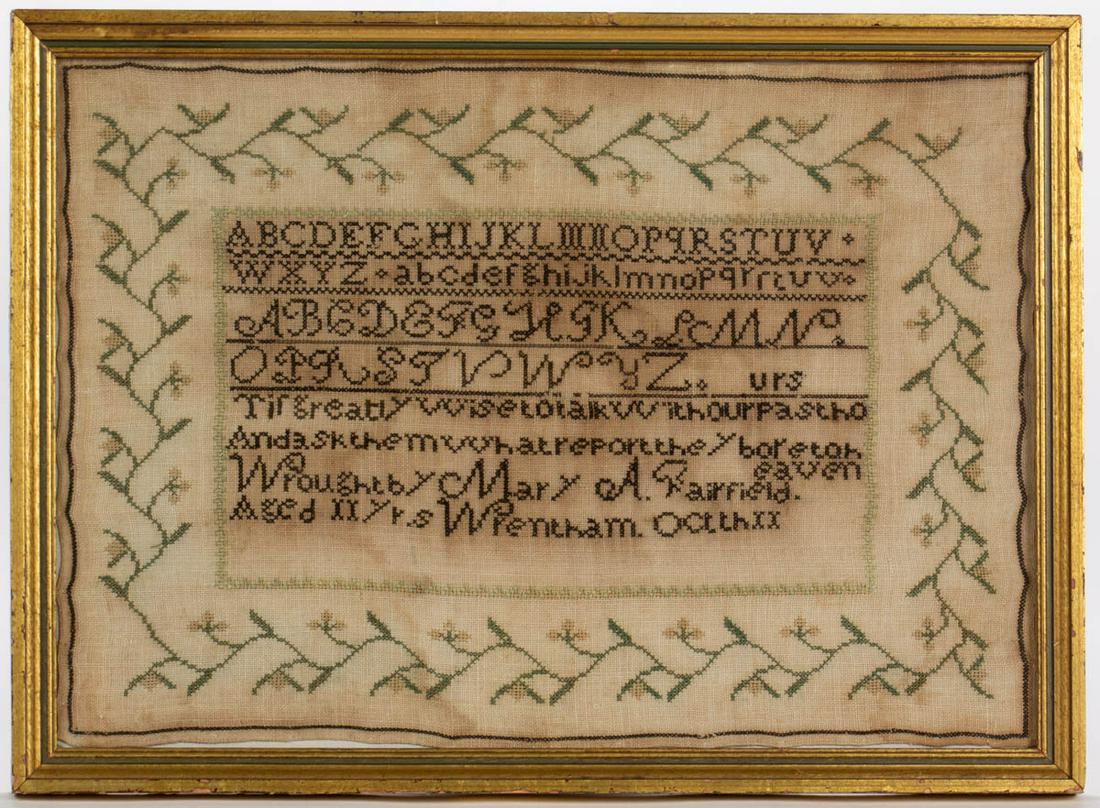 ABCDEFGHIJKLMNOPqRSTUV
WXYZ abcdefghijklmnopqrrtuvw
ABCDEFGHIK LMN
OPQRSTVWYZ. urs
Tis greatly wise to talk with our past ho
And ask them what report they bore to h
eaven
Wrought by Mary A. Fairfield.
Aged II yrs Wrentham. Oct th II